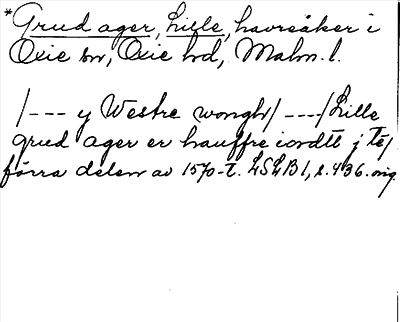 *Grud ager, Lille, havreåker i
Oxie sn, Oxie hd, Malm. l.
/--- y Westre wongh/ ---/ Lille
grud ager er hauffre iordtt j Te/
förra delen av 1570-t. LSLB 1, s. 436. orig.